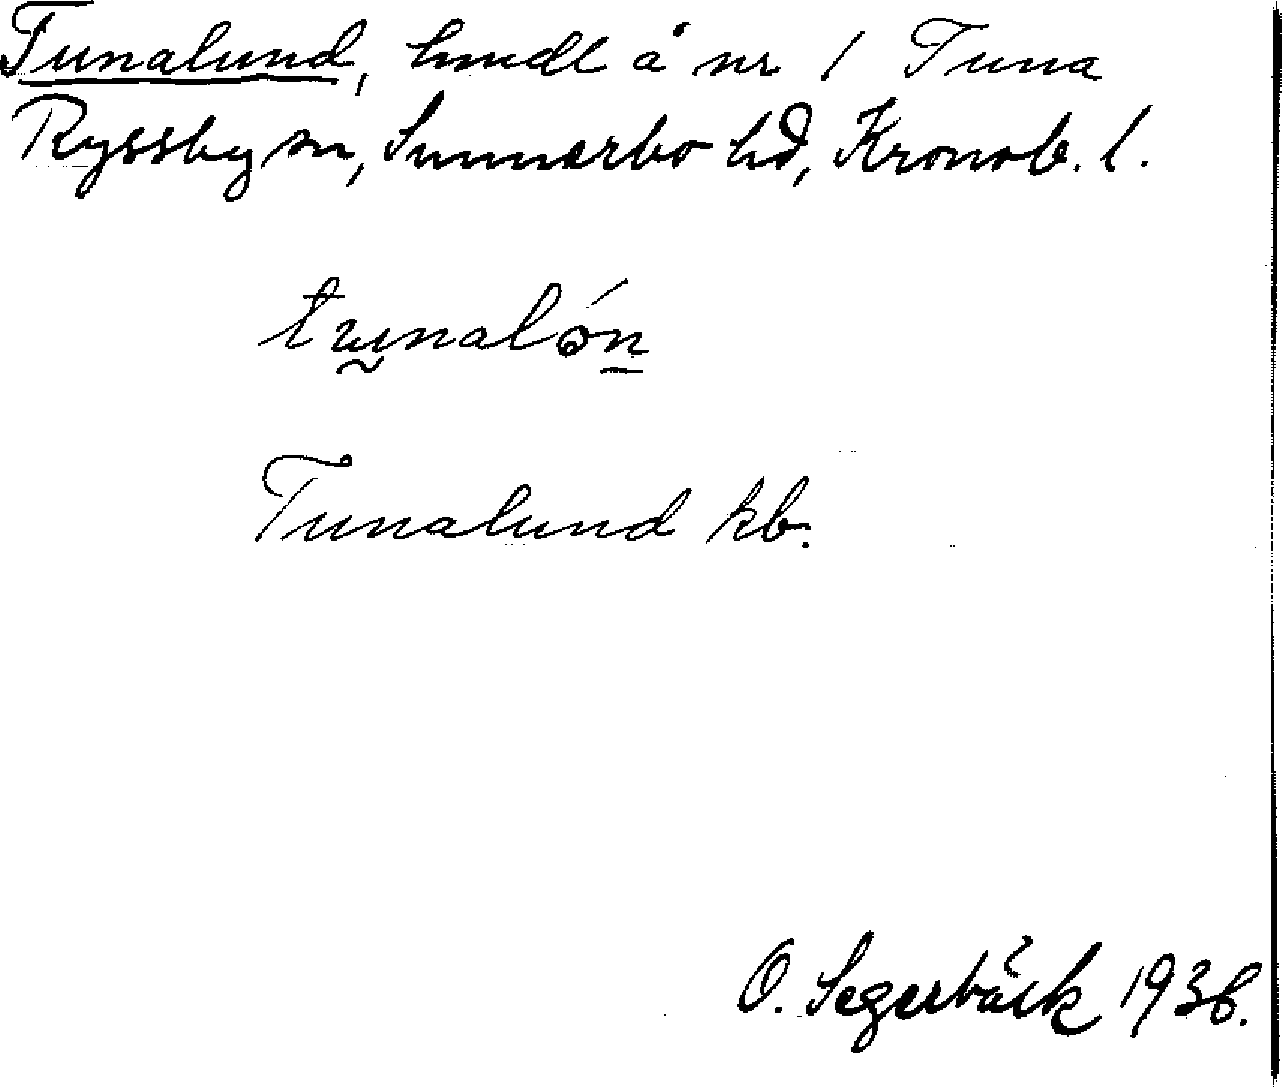 Tunalund, hmdl å nr 1 Tuna
Ryssby sn, Sunnerbo hd, Kronob. l.
tṵnalón̲
Tunalund kb.
O. Segerbäck 1936.